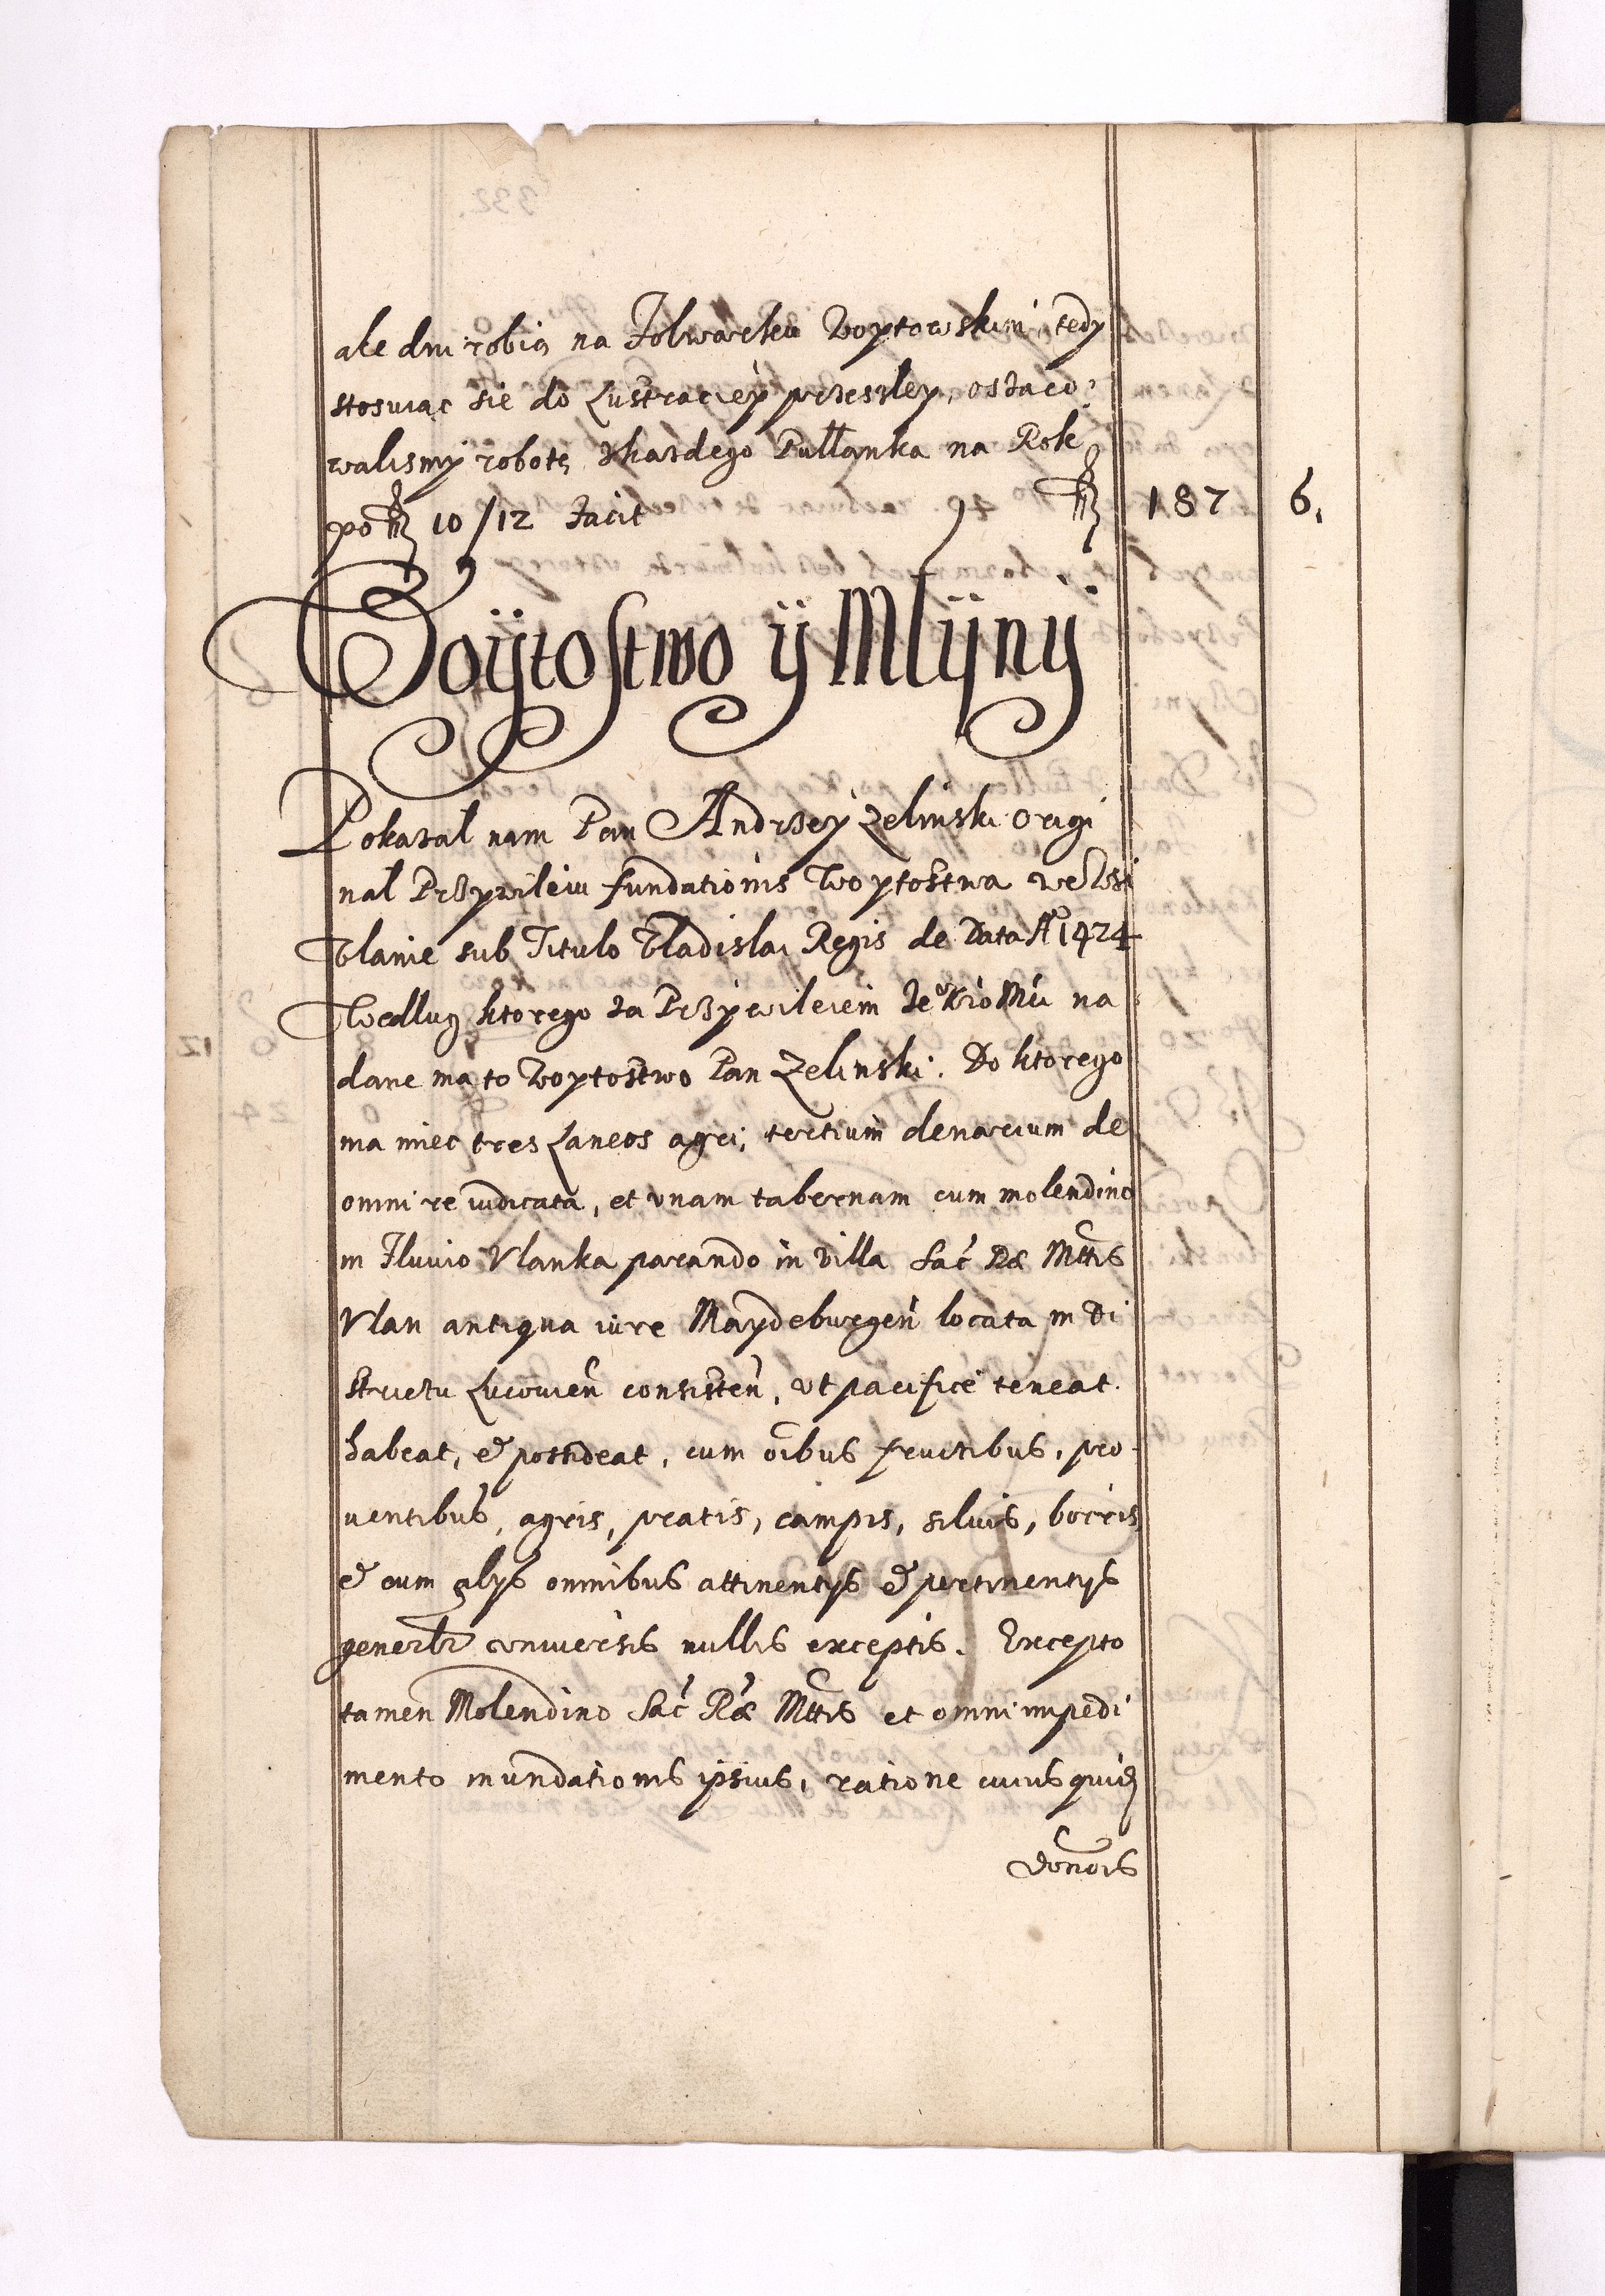 ale dni robią na Folwarku Woytowskim, tedy
stosuiąc sie do Lustracięÿ przeszley, oszaco:
walismÿ robotę Zkazdego Pułłanka na Rok
po fl 10/12 Facit fl 187 6.
Woÿtostwo ÿ Mlÿnÿ
Pokazal nam Pan Andrzeÿ Zelinski origi
nal Przywileiu fundationis Woytostwa weWsi
Vlanie sub Titulo Vladislai Regis de Data Aº 1424
Wedlug ktorego za Przÿwileiem Je° Kro Mci na
dane ma to Woytostwo Pan Zelinski. Do ktorego
ma miec tres Laneos agri, tertium denarium de
omni re iudicata, et vnam tabernam cum molendino
in Fluvio Vlanka parando in Villa Sac Rae Mttis
Vlan antiqua iure Maydeburgen locata in di
strictu Lucovien consisten, vt pacifice teneat.
habeat, et possideat, cum oibus fructibus, pro-
uentibus, agris, pratis, campis, siluis, borris,
et cum alÿs omnibus attinentÿs et pertinentÿs
generlr conuersis nullis exceptis. Excepto
tamen Molendino Sac Rae Mttis et omni impedi
mento inundationis ipsius, ratione cuius quidē